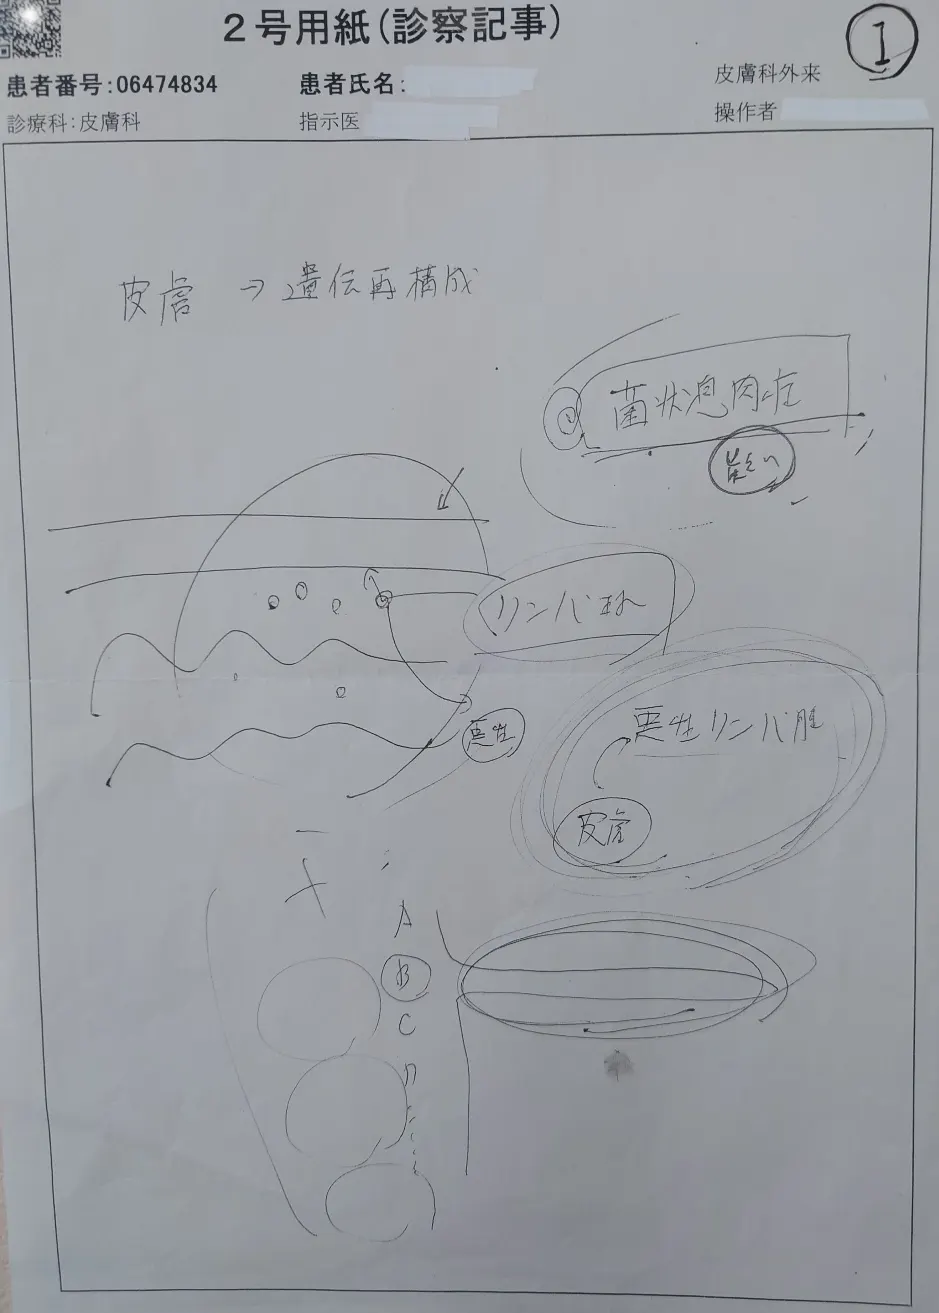 2号用紙(診察記事)
1
患者番号:06474834
患者氏名:
皮膚科外来
診療科:皮膚科
指示医
操作者
皮膚 → 遺伝再構成
菌状息肉症
リンパ球
悪性リンパ腫
悪性
皮膚
A
B
C
D